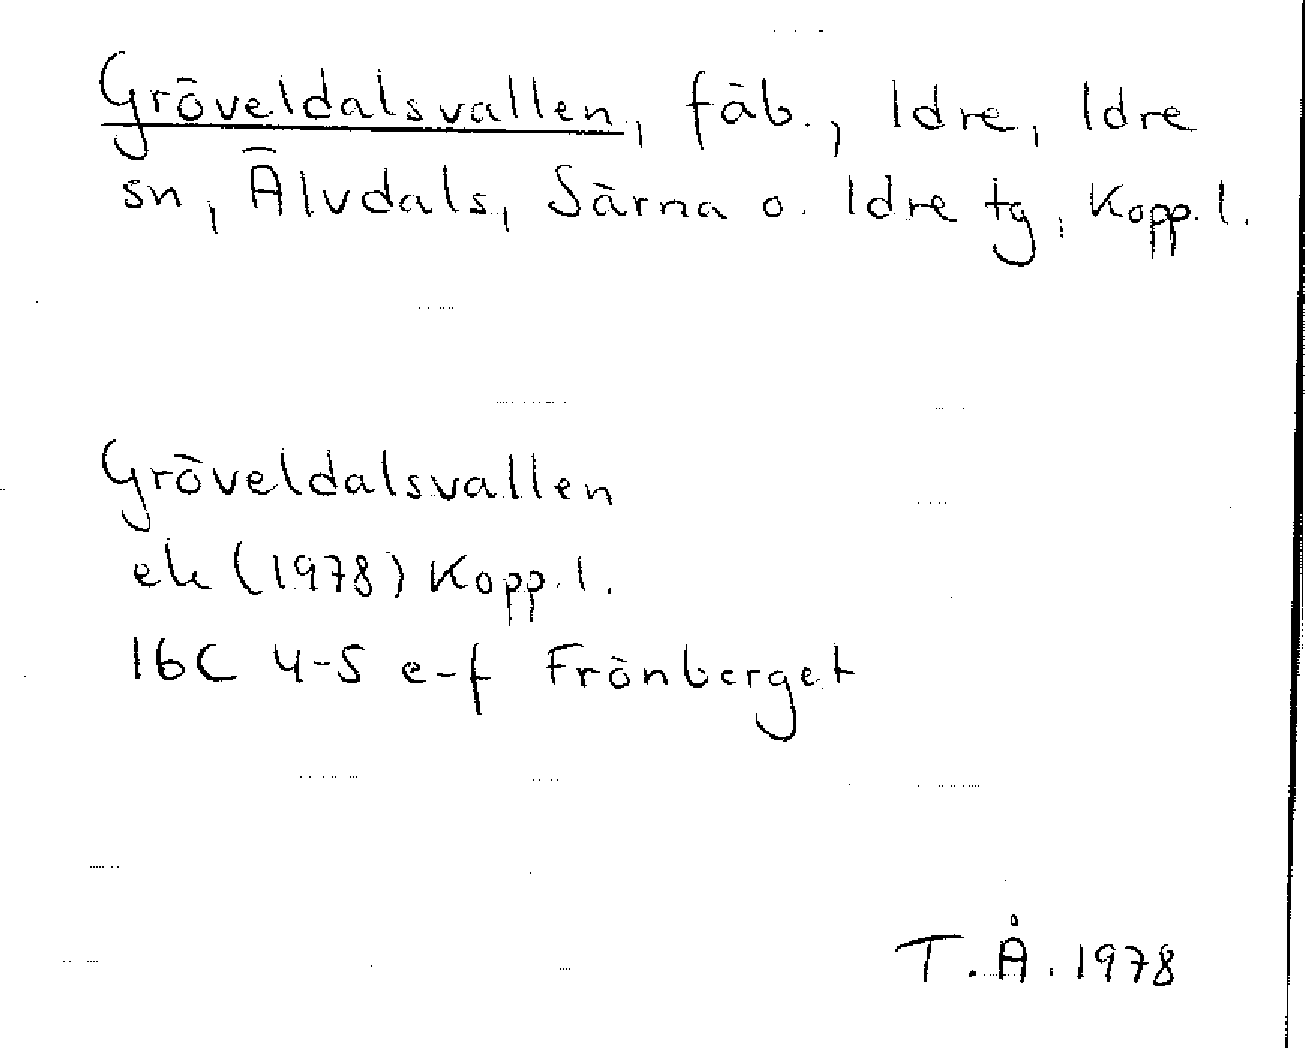 Gröveldalsvallen, fäb., Idre, Idre
sn, Älvdals, Särna o. Idre tg, Kopp. l.
Gröveldalsvallen
ek (1978) Kopp. l.
16C 4-5 e-f Frönberget
T.Å. 1978